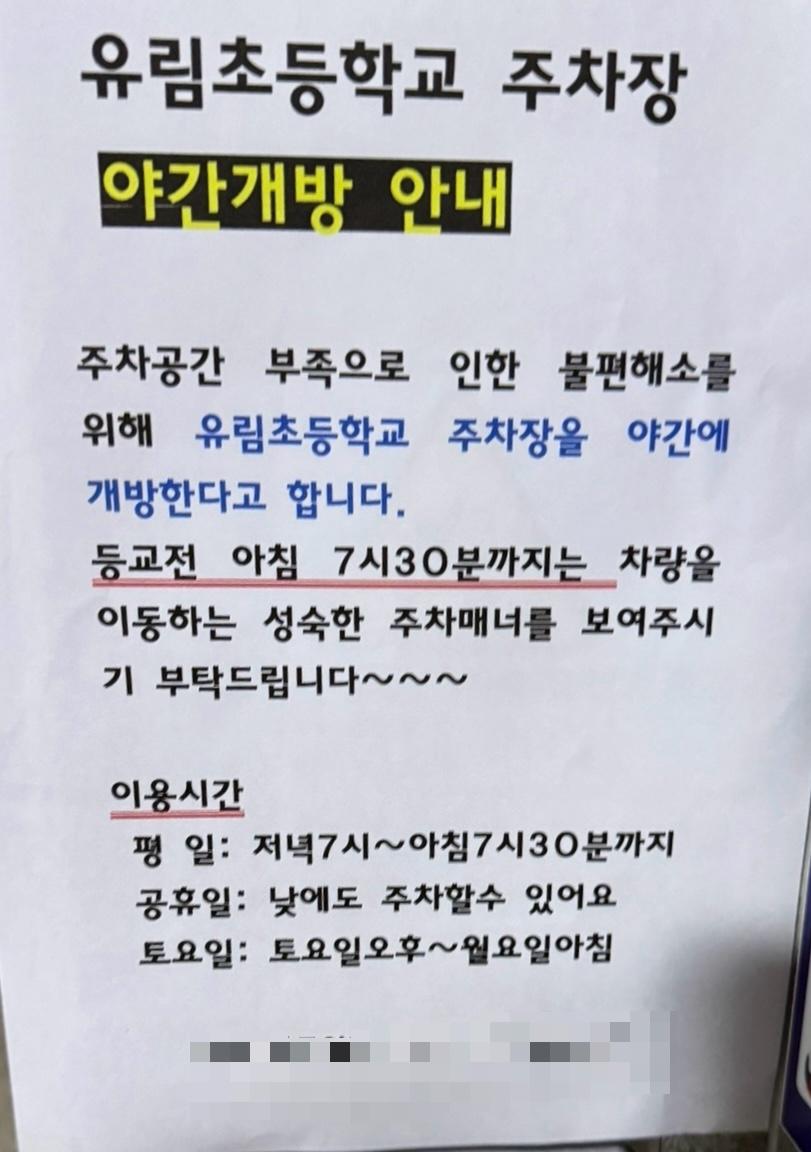 유림초등학교 주차장
야간개방 안내
주차공간 부족으로 인한 불편해소를
위해 유림초등학교 주차장을 야간에
개방한다고 합니다.
등교전 아침 7시30분까지는 차량을
이동하는 성숙한 주차매너를 보여주시
기 부탁드립니다~~~
이용시간
평 일: 저녁7시~아침7시30분까지
공휴일: 낮에도 주차할수 있어요
토요일: 토요일오후~월요일아침